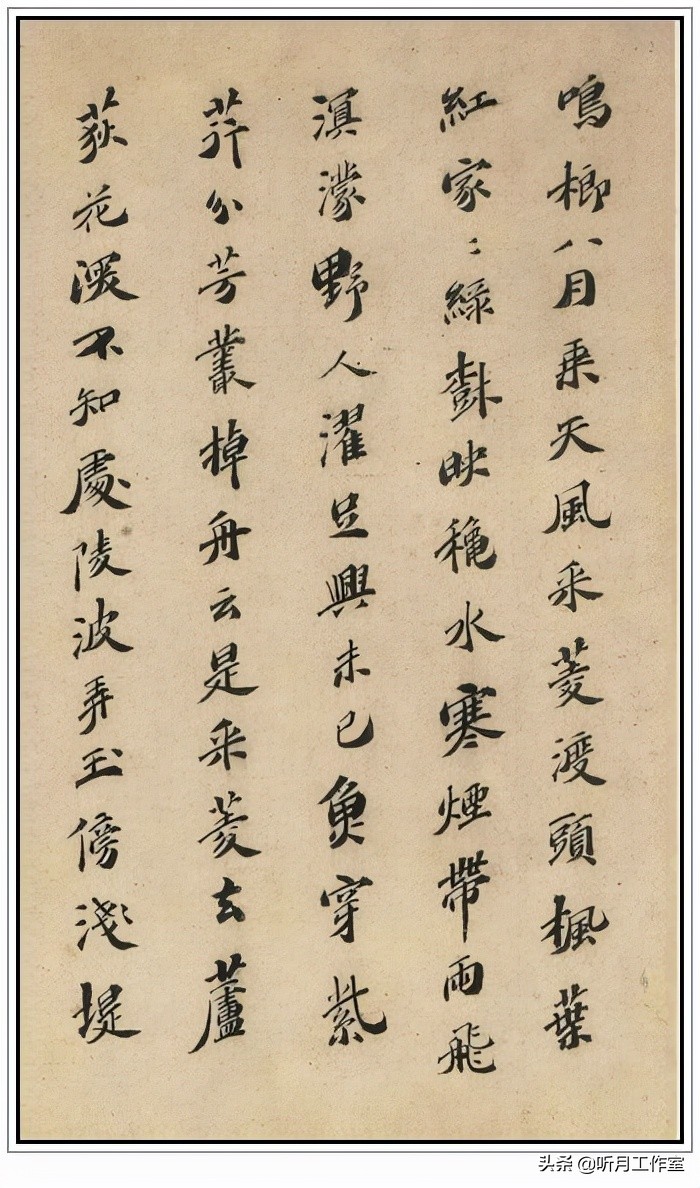 鳴榔八月乗天風采菱渡頭楓葉
紅家〻綠樹映穐水寒煙帶雨飛
溟濛野人濯足興未已魚穿紫
荇分芳叢棹舟云是采菱去蘆
荻花深不知處陵波弄玉傍淺堤
头条 @听月工作室